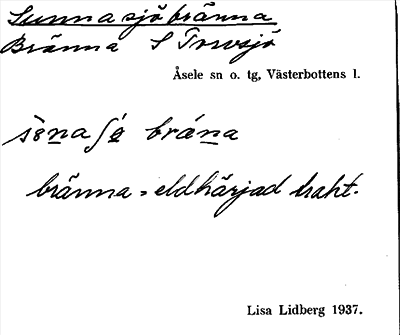 Sunnasjöbränna
Bränna S Torvsjö
Åsele sn o. tg, Västerbottens l.
bräna
bränna = eldhärjad trakt.
Lisa Lidberg 1937.